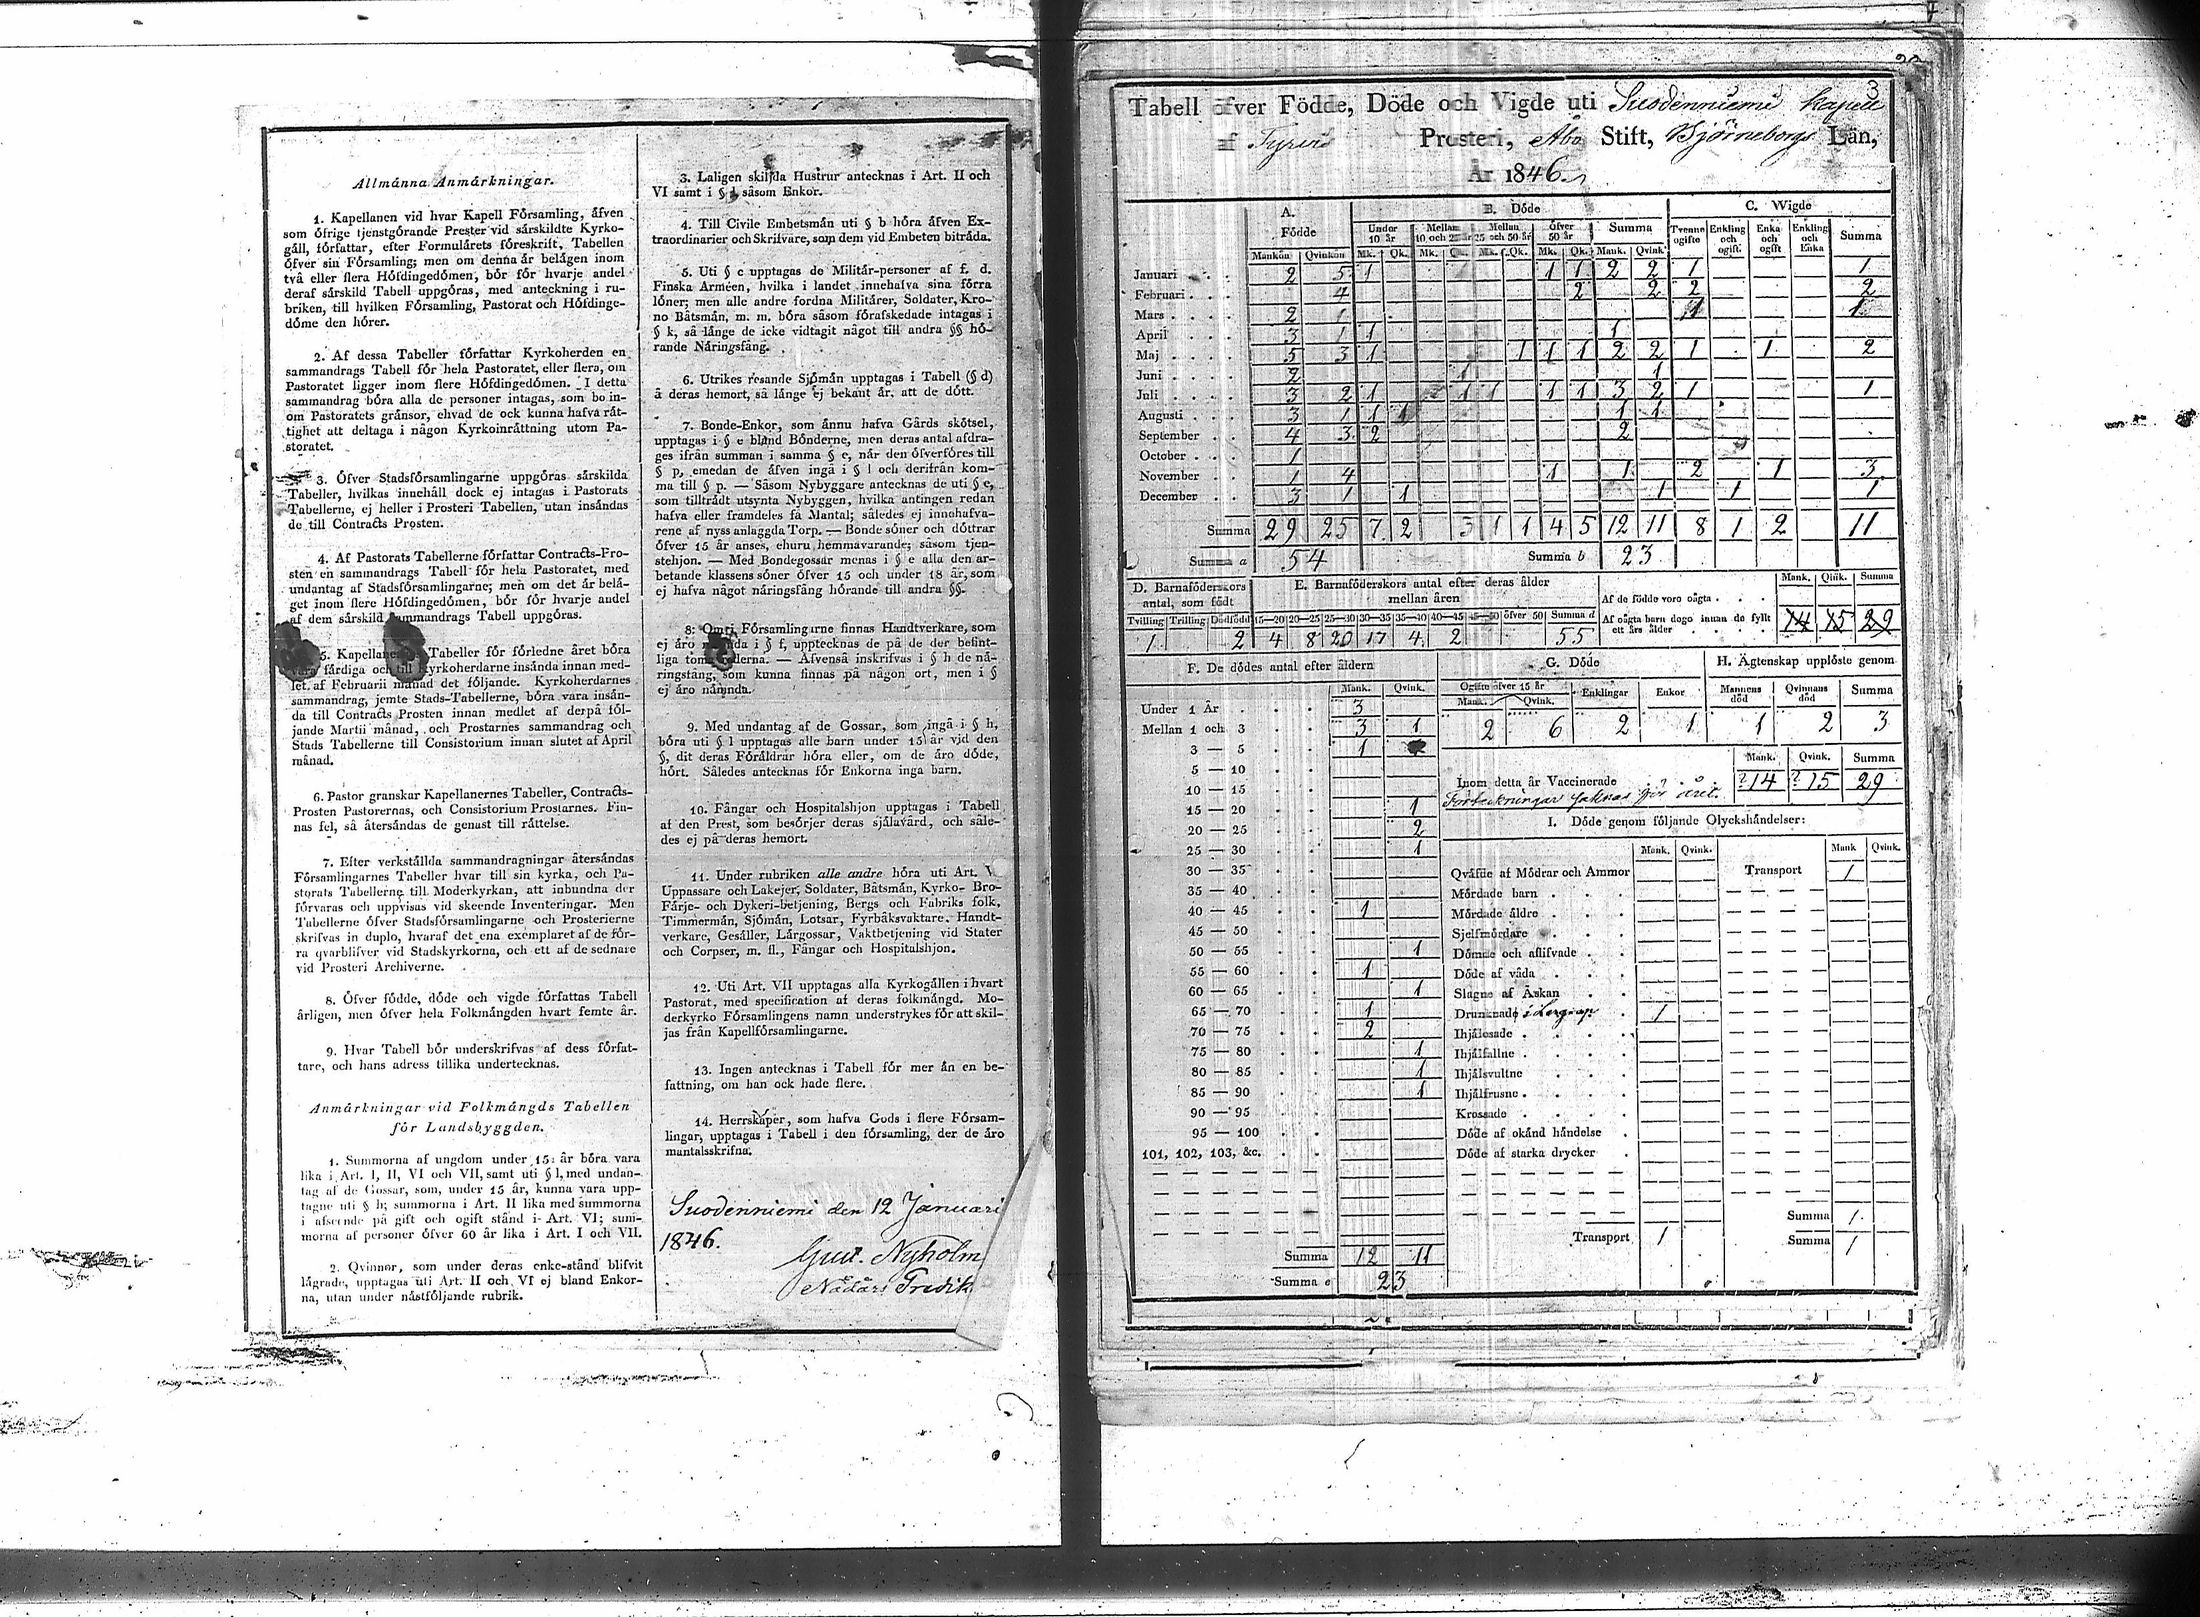 Allmånna Anmårkningar.
1. Kapellanen vid hvar Kapell Församling, åfven
som öfrige tjenstgörande Prester vid sårskildte Kyrko-
gåll, författar, efter Formulårets föreskrift, Tabellen
öfver sin Församling; men om denna år belågen inom
två eller flera Höfdingedömen, bör för hvarje andel
deraf sårskild Tabell uppgöras, med anteckning i ru-
briken, till hvilken Församling, Pastorat och Höfdinge-
döme den hörer.
2. Af dessa Tabeller författar Kyrkoherden en
sammandrags Tabell för hela Pastoratet, eller flera, om
Pastoratet ligger inom flere Höfdingedömen. I detta
sammandrag böra alla de personer intagas, som bo in-
om Pastoratets grånsor, ehvad de ock kunna hafva råt-
tighet att deltaga i någon Kyrkoinråttning utom Pa-
storatet.
3. Öfver Stadsförsamlingarne uppgöras sårskilda
Tabeller, hvilkas innehåll dock ej intagas i Pastorats
Tabellerne, ej heller i Prosteri Tabellen, utan insåndas
de till Contracts Prosten.
4. Af Pastorats Tabellerne författar Contracts-Pro-
sten en sammandrags Tabell för hela Pastoratet, med
undantag af Stadsförsamlingarne; men om det år belå-
get inom flere Höfdingedömen, bör för hvarje andel
af dem sårskild sammandrags Tabell uppgöras.
5. Kapellanernes Tabeller för förledne året böra
vara fårdiga och till Kyrkoherdarne insånda innan med-
let af Februarii månad det följande. Kyrkoherdarnes
sammandrag, jemte Stads-Tabellerne, böra vara insån-
da till Contracts Prosten innan medlet af derpå föl-
jande Martii månad, och Prostarnes sammandrag och
Stads Tabellerne till Consistorium innan slutet af April
månad.
6. Pastor granskar Kapellanernes Tabeller, Contracts-
Prosten Pastorernas, och Consistorium Prostarnes. Fin-
nas fel, så återsåndas de genast till råttelse.
7. Efter verkstållda sammandragningar återsåndas
Församlingarnes Tabeller hvar till sin kyrka, och Pa-
storats Tabellerne till Moderkyrkan, att inbundna der
förvaras och uppvisas vid skeende Inventeringar. Men
Tabellerne öfver Stadsförsamlingarne och Prosterierne
skrifvas in duplo, hvaraf det ena exemplaret af de för-
ra qvarblifver vid Stadskyrkorna, och ett af de sednare
vid Prosteri Archiverne.
8. Öfver födde, döde och vigde författas Tabell
årligen, men öfver hela Folkmångden hvart femte år.
9. Hvar Tabell bör underskrifvas af dess förfat-
tare, och hans adress tillika undertecknas.
Anmårkningar vid Folkmångds Tabellen
för Landsbyggden.
1. Summorna af ungdom under 15 år böra vara
lika i Art. I, II, VI och VII, samt uti § l, med undan-
tag af de Gossar, som, under 15 år, kunna vara upp-
tagne uti § h; summorna i Art. II lika med summorna
i afseende på gift och ogift stånd i Art. VI; sum-
morna af personer öfver 60 år lika i Art. I och VII.
2. Qvinnor, som under deras enke-stånd blifvit
lågrade, upptagas uti Art. II och VI ej bland Enkor-
na, utan under nåstföljande rubrik.
3. Laligen skiljda Hustrur antecknas i Art. II och
VI samt i § l såsom Enkor.
4. Till Civile Embetsmån uti § b höra åfven Ex-
traordinarier och Skrifvare, som dem vid Embeten bitråda.
5. Uti § c upptagas de Militår-personer af f. d.
Finska Arméen, hvilka i landet innehafva sina förra
löner; men alle andre fordna Militårer, Soldater, Kro-
no Båtsmån, m. m. böra såsom förafskedade intagas i
§ k, så långe de icke vidtagit något till andra §§ hö-
rande Nåringsfång.
6. Utrikes resande Sjömån upptagas i Tabell (§ d)
å deras hemort, så långe ej bekant år, att de dött.
7. Bonde-Enkor, som ånnu hafva Gårds skötsel,
upptagas i § e bland Bönderne, men deras antal afdra-
ges ifrån summan i samma § e, når den öfverföres till
§ p, emedan de åfven ingå i § l och derifrån kom-
ma till § p. — Såsom Nybyggare antecknas de uti § e,
som tilltrådt utsynta Nybyggen, hvilka antingen redan
hafva eller framdeles få Mantal; således ej innehafva-
rene af nyss anlaggda Torp. — Bonde söner och döttrar
öfver 15 år anses, ehuru hemmavarande, såsom tjen-
stehjon. — Med Bondegossar menas i § e alla den ar-
betande klassens söner öfver 15 och under 18 år, som
ej hafva något nåringsfång hörande till andra §§.
8. Om i Församlingarne finnas Handtverkare, som
ej åro nåmnda i § f, upptecknas de på de der befint-
liga toma raderna. — Åfvenså inskrifvas i § h de nå-
ringsfång, som kunna finnas på någon ort, men i §
ej åro nåmnda.
9. Med undantag af de Gossar, som ingå i § h,
böra uti § l upptagas alle barn under 15 år vid den
§, dit deras Föråldrar höra eller, om de åro döde,
hört. Således antecknas för Enkorna inga barn.
10. Fångar och Hospitalshjon upptagas i Tabell
af den Prest, som besörjer deras sjålavård, och såle-
des ej på deras hemort.
11. Under rubriken alle andre höra uti Art. V
Uppassare och Lakejer, Soldater, Båtsmån, Kyrko- Bro-
Fårje- och Dykeri-betjening, Bergs och Fabriks folk,
Timmermån, Sjömån, Lotsar, Fyrbåksvaktare, Handt-
verkare, Gesåller, Lårgossar, Vaktbetjening vid Stater
och Corpser, m. fl., Fångar och Hospitalshjon.
12. Uti Art. VII upptagas alla Kyrkogållen i hvart
Pastorat, med specification af deras folkmångd. Mo-
derkyrko Församlingens namn understrykes för att skil-
jas från Kapellförsamlingarne.
13. Ingen antecknas i Tabell för mer ån en be-
fattning, om han ock hade flere.
14. Herrskaper, som hafva Gods i flere Försam-
lingar, upptagas i Tabell i den församling, der de åro
mantalsskrifna.
Suodenniemi den 12 Januari
1846.
Gust. Nyholm
Nådårs Predik.
3
Tabell öfver Födde, Döde och Vigde uti Suodenniemi Kapell
af Tyrvis Prosteri, Åbo Stift, Björneborgs Län,
År 1846.
A. Födde B. Döde C. Wigde
Under 10 år Mellan 10 och 25 år Mellan 25 och 50 år Öfver 50 år Summa Tvenne ogifte Enkling och ogift. Enka och ogift Enkling och Enka Summa
Mankön Qvinkön Mk. Qk. Mk. Qk. Mk. Qk. Mk. Qk. Mank. Qvink.
Januari 2 5 1 1 1 2 2 1 1
Februari 4 2 2 2 2
Mars 2 1 1 1
April 3 1 1 1
Maj 5 3 1 1 1 1 2 2 1 1 2
Juni 2 1 1
Juli 3 2 1 1 1 1 1 3 2 1 1
Augusti 3 1 1 1 1 1
September 4 3 2 2
October 1
November 1 4 1 1 2 1 3
December 3 1 1 1 1 1
Summa 29 25 7 2 3 1 1 4 5 12 11 8 1 2 11
Summa a 54 Summa b 23
D. Barnaföderskors antal, som födt
Tvilling Trilling Dödfödd
1 2
E. Barnaföderskors antal efter deras ålder mellan åren
15—20 20—25 25—30 30—35 35—40 40—45 45—50 öfver 50 Summa d
4 8 20 17 4 2 55
Mank. Qvink. Summa
Af de födde voro oågta
Af oågta barn dogo innan de fyllt ett års ålder 14 15 29
F. De dödes antal efter åldern
Mank. Qvink.
Under 1 År 3
Mellan 1 och 3 3 1
3 — 5 1
5 — 10
10 — 15
15 — 20 1
20 — 25 2
25 — 30 1
30 — 35
35 — 40
40 — 45 1
45 — 50
50 — 55 1
55 — 60 1
60 — 65 1
65 — 70 1
70 — 75 2
75 — 80 1
80 — 85 1
85 — 90 1
90 — 95
95 — 100
101, 102, 103, &c.
Summa 12 11
Summa e 23
G. Döde
Ogifte öfver 15 år Enklingar Enkor
Mank. Qvink.
2 6 2 1
H. Ägtenskap upplöste genom
Mannens död Qvinnans död Summa
1 2 3
Mank. Qvink. Summa
Inom detta år Vaccinerade ?14 ?15 29
Förteckningar saknas för året.
I. Döde genom följande Olyckshåndelser:
Mank. Qvink. Mank Qvink.
Qvåfde af Mödrar och Ammor Transport 1
Mördade barn
Mördade åldre
Sjelfmördare
Dömde och aflifvade
Döde af våda
Slagne af Åskan
Drunknade i Lergrop 1
Ihjålösade
Ihjålfallne
Ihjålsvultne
Ihjålfrusne
Krossade
Döde af okånd håndelse
Döde af starka drycker
Summa 1
Transport 1 Summa 1